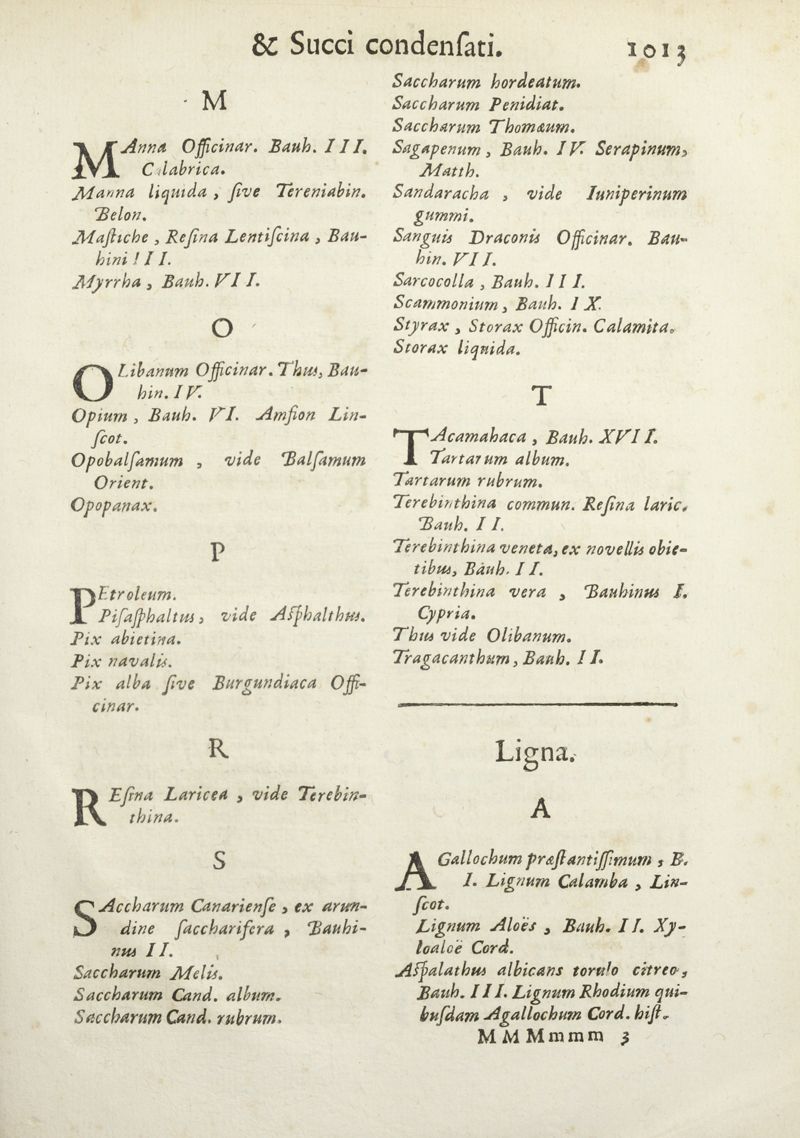 & Succi condenſati. 1013
M
MAnna Officinar. Bauh. III.
Calabrica.
Manna liquida, ſive Tereniabin.
Belon.
Maſtiche, Reſina Lentiſcina, Bau-
hini III.
Myrrha, Bauh. VII.
O
OLibanum Officinar. Thus, Bau-
hin. IV.
Opium, Bauh. VI. Amfion Lin-
ſcot.
Opobalſamum, vide Balſamum
Orient.
Opopanax.
P
PEtroleum.
Piſaſphaltus, vide Aſphalthus.
Pix abietina.
Pix navalis.
Pix alba ſive Burgundiaca Offi-
cinar.
R
REſina Laricea, vide Terebin-
thina.
S
SAccharum Canarienſe, ex arun-
dine ſaccharifera, Bauhi-
nus II.
Saccharum Melis.
Saccharum Cand. album.
Saccharum Cand. rubrum.
Saccharum hordeatum.
Saccharum Penidiat.
Saccharum Thomæum.
Sagapenum, Bauh. IV. Serapinum,
Matth.
Sandaracha, vide Iuniperinum
gummi.
Sanguis Draconis Officinar. Bau-
hin. VII.
Sarcocolla, Bauh. III.
Scammonium, Bauh. IX.
Styrax, Storax Officin. Calamita.
Storax liquida.
T
TAcamahaca, Bauh. XVII.
Tartarum album.
Tartarum rubrum.
Terebinthina commun. Reſina laric.
Bauh. II.
Terebinthina veneta, ex novellis obie-
tibus, Bauh. II.
Terebinthina vera, Bauhinus I.
Cypria.
Thus vide Olibanum.
Tragacanthum, Bauh. II.
Ligna.
A
AGallochum præſtantiſſimum, B.
I. Lignum Calamba, Lin-
ſcot.
Lignum Aloës, Bauh. II. Xy-
loaloë Cord.
Aſpalathus albicans torulo citreo,
Bauh. III. Lignum Rhodium qui-
buſdam Agallochum Cord. hiſt.
MMMmmm 3